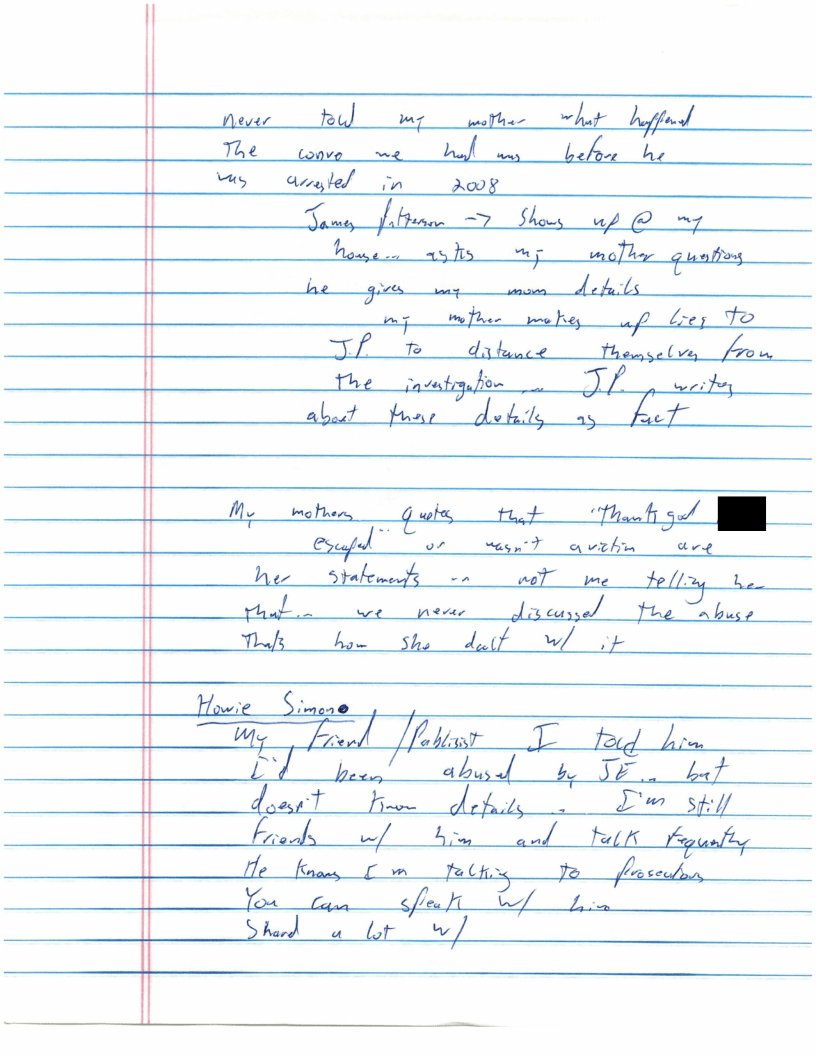 never told my mother what happened
The convo we had was before he
was arrested in 2008
James Patterson -> Shows up @ my
house... asks my mother questions
he gives my mom details
my mother makes up lies to
J.P. to distance themselves from
the investigation ... J.P. writes
about these details as fact
My mothers quotes that "Thank god
escaped" or wasn't a victim are
her statements -- not me telling her
that... we never discussed the abuse
That's how she dealt w/ it
Howie Simon
My friend / Publisist I told him
I'd been abused by JE... but
doesn't know details .. I'm still
friends w/ him and talk frequently
He knows I'm talking to prosecutors
You can speak w/ him
Shared a lot w/